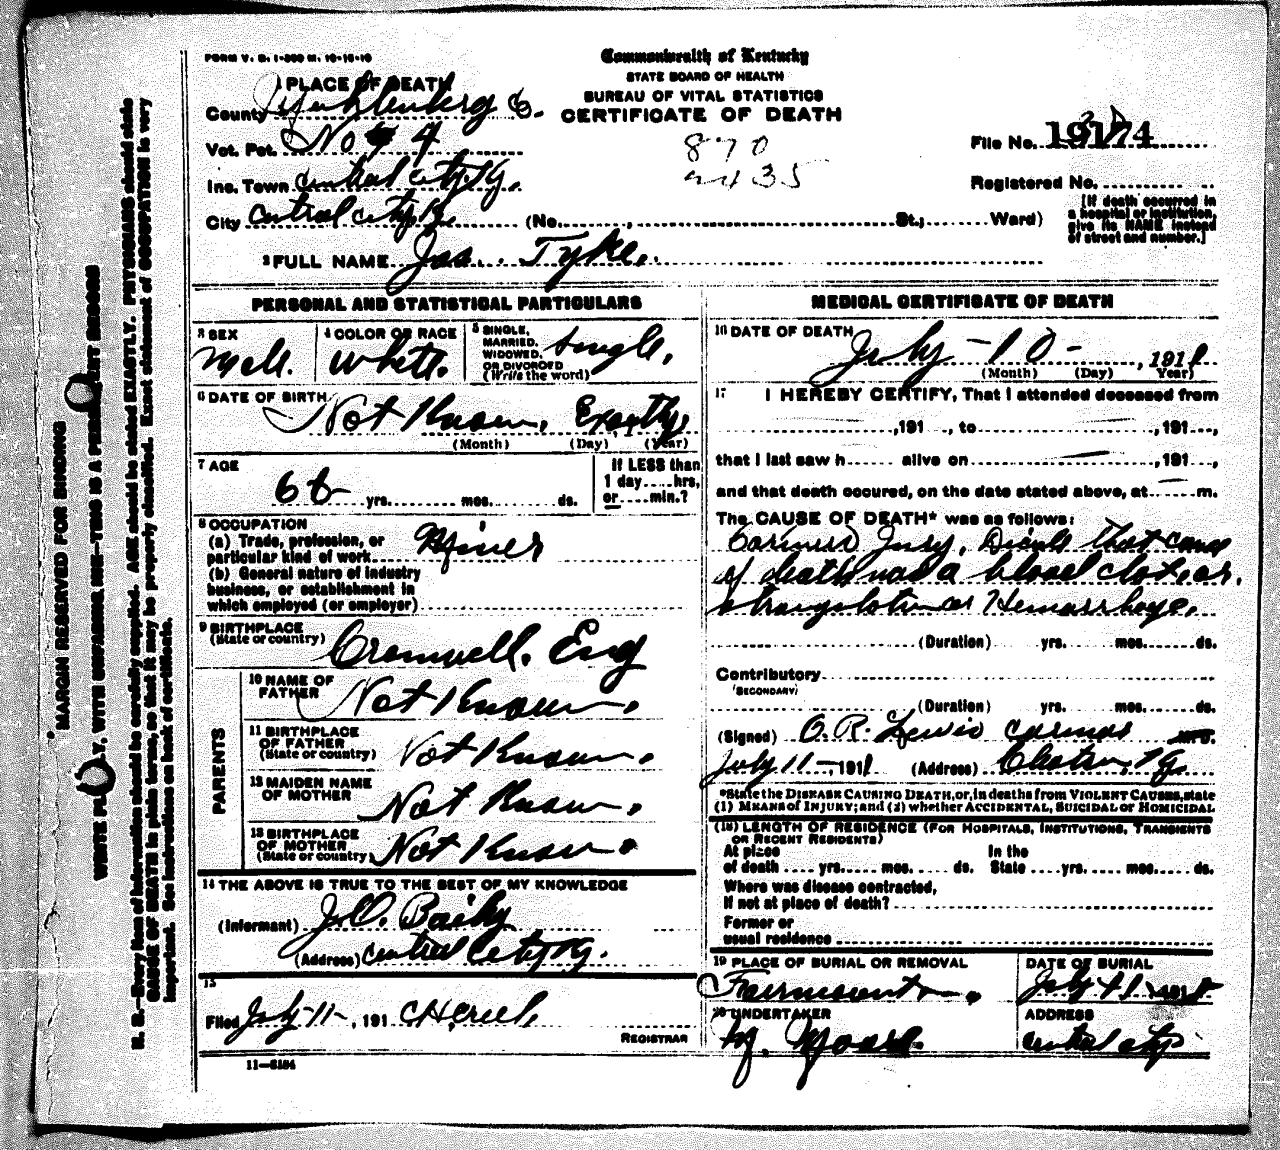 FORM V. S. 1-500 M. 10-18-10
Commonwealth of Kentucky
STATE BOARD OF HEALTH
BUREAU OF VITAL STATISTICS
CERTIFICATE OF DEATH
1 PLACE OF DEATH
County Muhlenberg Co.
Vot. Pct. No 4
Inc. Town Central City Ky.
City Central City Ky. (No. , St.; Ward)
870
2435
File No. 19174
Registered No.
[If death occurred in
a hospital or institution,
give its NAME instead
of street and number.]
2 FULL NAME Jas. Tyke.
PERSONAL AND STATISTICAL PARTICULARS
3 SEX
Male.
4 COLOR OR RACE
White.
5 SINGLE,
MARRIED,
WIDOWED,
OR DIVORCED
(Write the word)
Single,
6 DATE OF BIRTH
Not Known, Exactly,
(Month) (Day) (Year)
7 AGE
66 yrs. mos. ds.
If LESS than
1 day....hrs,
or....min.?
8 OCCUPATION
(a) Trade, profession, or
particular kind of work Miner
(b) General nature of industry
business, or establishment in
which employed (or employer)
9 BIRTHPLACE
(State or country)
Cromwell. Eng
PARENTS
10 NAME OF
FATHER
Not Known.
11 BIRTHPLACE
OF FATHER
(State or country)
Not Known.
12 MAIDEN NAME
OF MOTHER
Not Known.
13 BIRTHPLACE
OF MOTHER
(State or country)
Not Known.
14 THE ABOVE IS TRUE TO THE BEST OF MY KNOWLEDGE
(Informant) J.O. Baily
(Address) Central City Ky.
15
Filed July 11-, 191
REGISTRAR
11-3184
MEDICAL CERTIFICATE OF DEATH
16 DATE OF DEATH
July - 10 - , 1911
(Month) (Day) Year)
17 I HEREBY CERTIFY, That I attended deceased from
,191 , to ,191 ,
that I last saw h alive on ,191 ,
and that death occured, on the date stated above, at m.
The CAUSE OF DEATH* was as follows:
Jury, that cause
of death was a blood clot, or.
strangulation or Hemorrhage.
(Duration) yrs. mos. ds.
Contributory
(SECONDARY)
(Duration) yrs. mos. ds.
(Signed) O. R. Lewis M.D.
July 11-, 1911 (Address) Ky.
*State the DISEASE CAUSING DEATH, or, in deaths from VIOLENT CAUSES, state
(1) MEANS OF INJURY; and (2) whether ACCIDENTAL, SUICIDAL or HOMICIDAL
(18) LENGTH OF RESIDENCE (FOR HOSPITALS, INSTITUTIONS, TRANSIENTS
OR RECENT RESIDENTS)
At place
of death yrs. mos. ds.
In the
State yrs. mos. ds.
Where was disease contracted,
If not at place of death?
Former or
usual residence
19 PLACE OF BURIAL OR REMOVAL
Fairmount
DATE OF BURIAL
July 11 191
20 UNDERTAKER
M. Moore.
ADDRESS
Central City
MARGIN RESERVED FOR BINDING
WRITE PLAINLY, WITH UNFADING INK—THIS IS A PERMANENT RECORD
N. B.—Every item of information should be carefully supplied. AGE should be stated EXACTLY. PHYSICIANS should state
CAUSE OF DEATH in plain terms, so that it may be properly classified. Exact statement of OCCUPATION is very
important. See instructions on back of certificate.